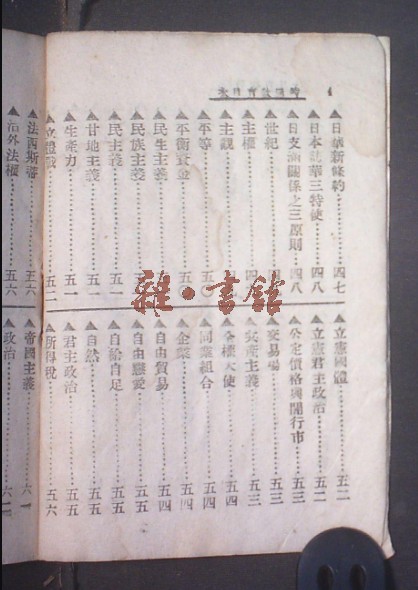 ▲日華新條約……四七
▲日本 華三特使……四八
▲日支 關係之三原則……四八
▲世紀
▲主權……四
▲主觀
▲平等……五
▲平衡資金
▲民生主義……五
▲民族主義……五
▲民主主義……五一
▲甘地主義……五一
▲生產力……五一
▲立體戰……五二
▲法西斯蒂……五六
▲治外法權……五六
▲立憲國體……五二
▲立憲君主政治……五二
▲公定價格與開行市……五三
▲交易場……五三
▲共產主義……五三
▲全權大使……五四
▲同業組合……五四
▲企業……五四
▲自由貿易……五四
▲自由戀愛……五五
▲自給自足……五五
▲自然……五五
▲君主政治……五五
▲所得稅……五六
▲帝國主義……六一
▲政治……六一
雜·書館